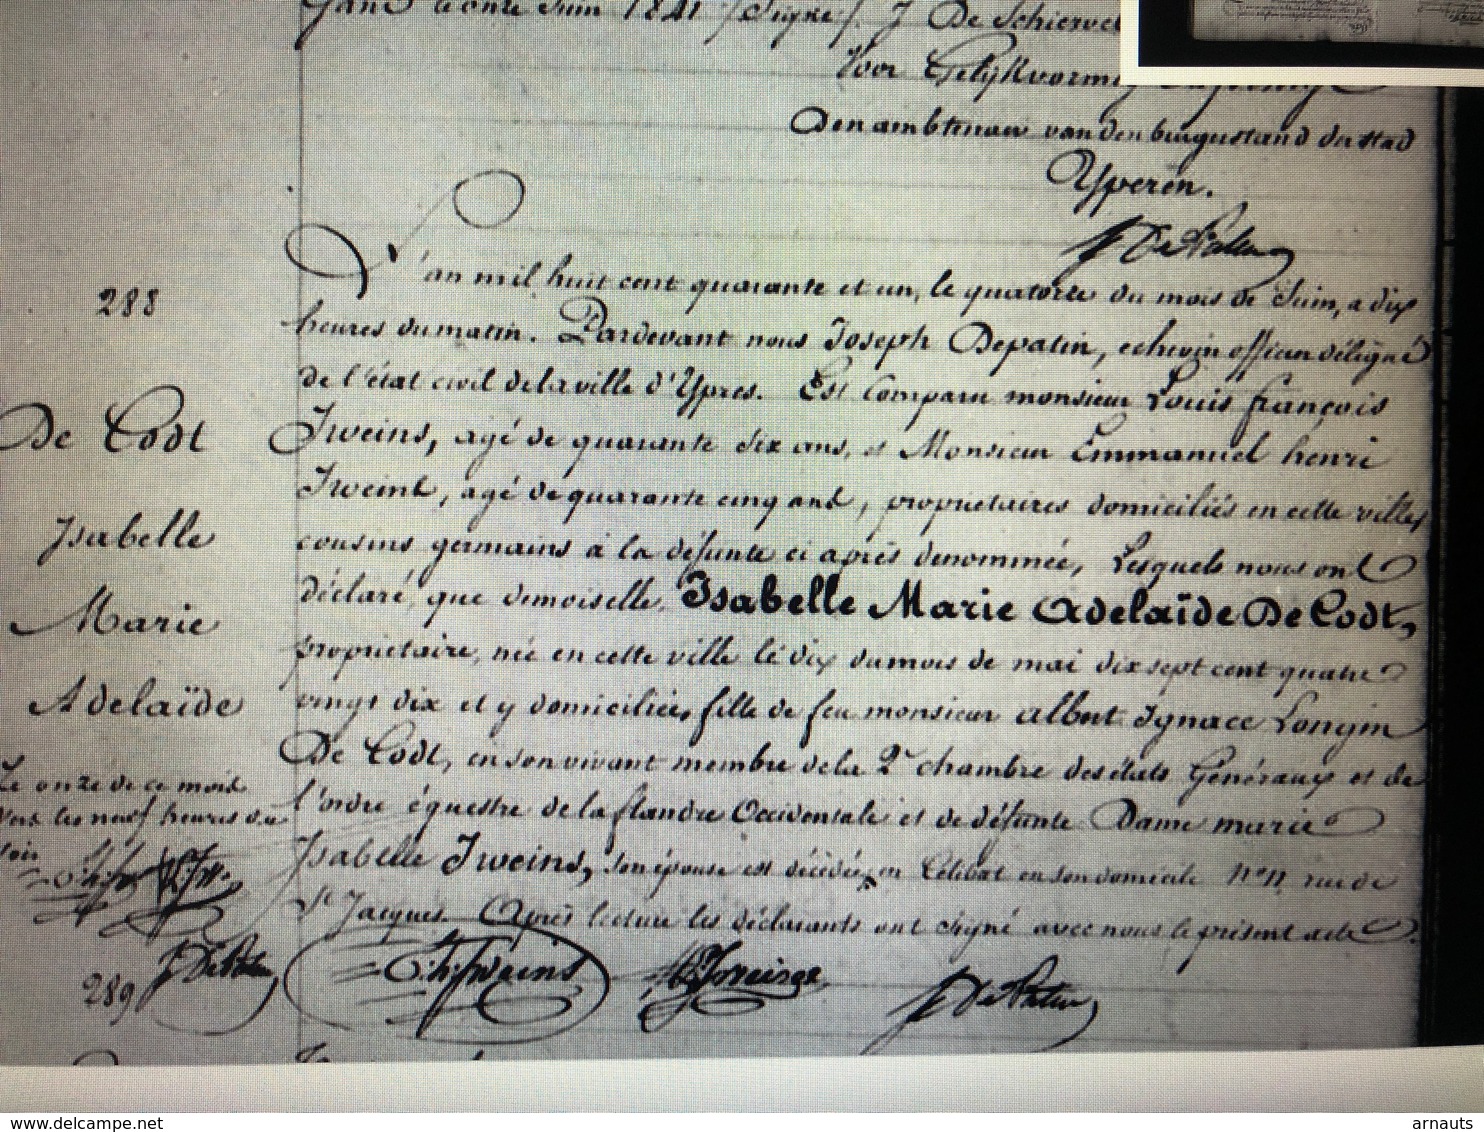 Gand le onze Juin 1841 /Signé/ J De Schiervel
Voor Gelijkvormig
Den ambtenaar van den burgerstand der stad
Yperen.
J DePatin
288
L'an mil huit cent quarante et un, le quatorze du mois de Juin, a dix
heures du matin. Pardevant nous Joseph Depatin, echevin officier délégué
de l'état civil de la ville d'Ypres. Est Comparu monsieur Louis françois
Iweins, agé de quarante six ans, et Monsieur Emmanuel henri
Iweins, agé de quarante cinq ans, propriétaires domiciliés en cette ville,
cousins germains à la défunte ci après denommée, Lesquels nous ont
déclaré, que demoiselle, Isabelle Marie Adelaïde De Codt,
propriétaire, née en cette ville le dix du mois de mai dix sept cent quatre
vingt dix et y domiciliée, fille de feu monsieur Albert Ignace Longin
De Codt, en son vivant membre de la 2e chambre des états Généraux et de
l'ordre équestre de la flandre Occidentale et de défunte Dame marie
Isabelle Iweins, son épouse est décédée, en Célibat en son domicile n° 11 rue de
St Jacques. Après lecture les déclarants ont signé avec nous le présent acte.
De Codt
Isabelle
Marie
Adelaïde
Le onze de ce mois
vers les neuf heures du
soir
J DePatin
E.h. Iweins
J DePatin
289
delcampe.net
arnauts